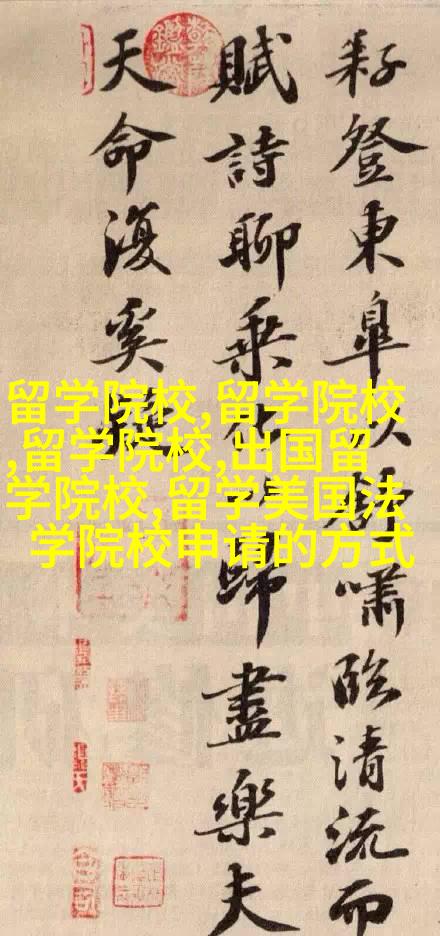 耔登東皋以舒嘯臨清流而
賦詩聊乘化以歸盡樂夫
天命復奚疑
留学院校,留学院校
,留学院校,出国留
学院校,留学美国法
学院校申请的方式